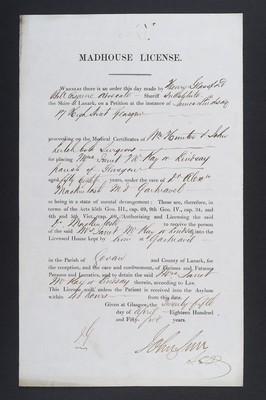 MADHOUSE LICENSE.
WHEREAS there is an order this day made by Henry Glassford
Bell Esquire Advocate Sheriff Substitute
the Shire of Lanark, on a Petition at the instance of James Lindsay
17 High Street Glasgow
proceeding on the Medical Certificates of Wm Hunter & John
both Surgeons
for placing Mrs Janet McKay or Lindsay
parish of Glasgow
aged fifty eight years, under the care of Dr Alexr
Mackintosh M.D. Gartnavel
as being in a state of mental derangement: These are, therefore,
in terms of the Acts 55th Geo. III., cap. 69, 9th Geo. IV., cap. 34, and
4th and 5th Vict. cap. 60, Authorising and Licensing the said
Dr Mackintosh to receive the person
of the said Mrs Janet McKay or Lindsay into the
Licensed House kept by him at Gartnavel
in the Parish of Govan and County of Lanark, for
the reception, and the care and confinement, of Furious and Fatuous
Persons and Lunatics, and to detain the said Mrs Janet
McKay or Lindsay therein, according to Law.
This License void, unless the Patient is received into the Asylum
within 48 hours from this date.
Given at Glasgow, the Twenty fifth
day of April Eighteen Hundred
and Fifty five years.